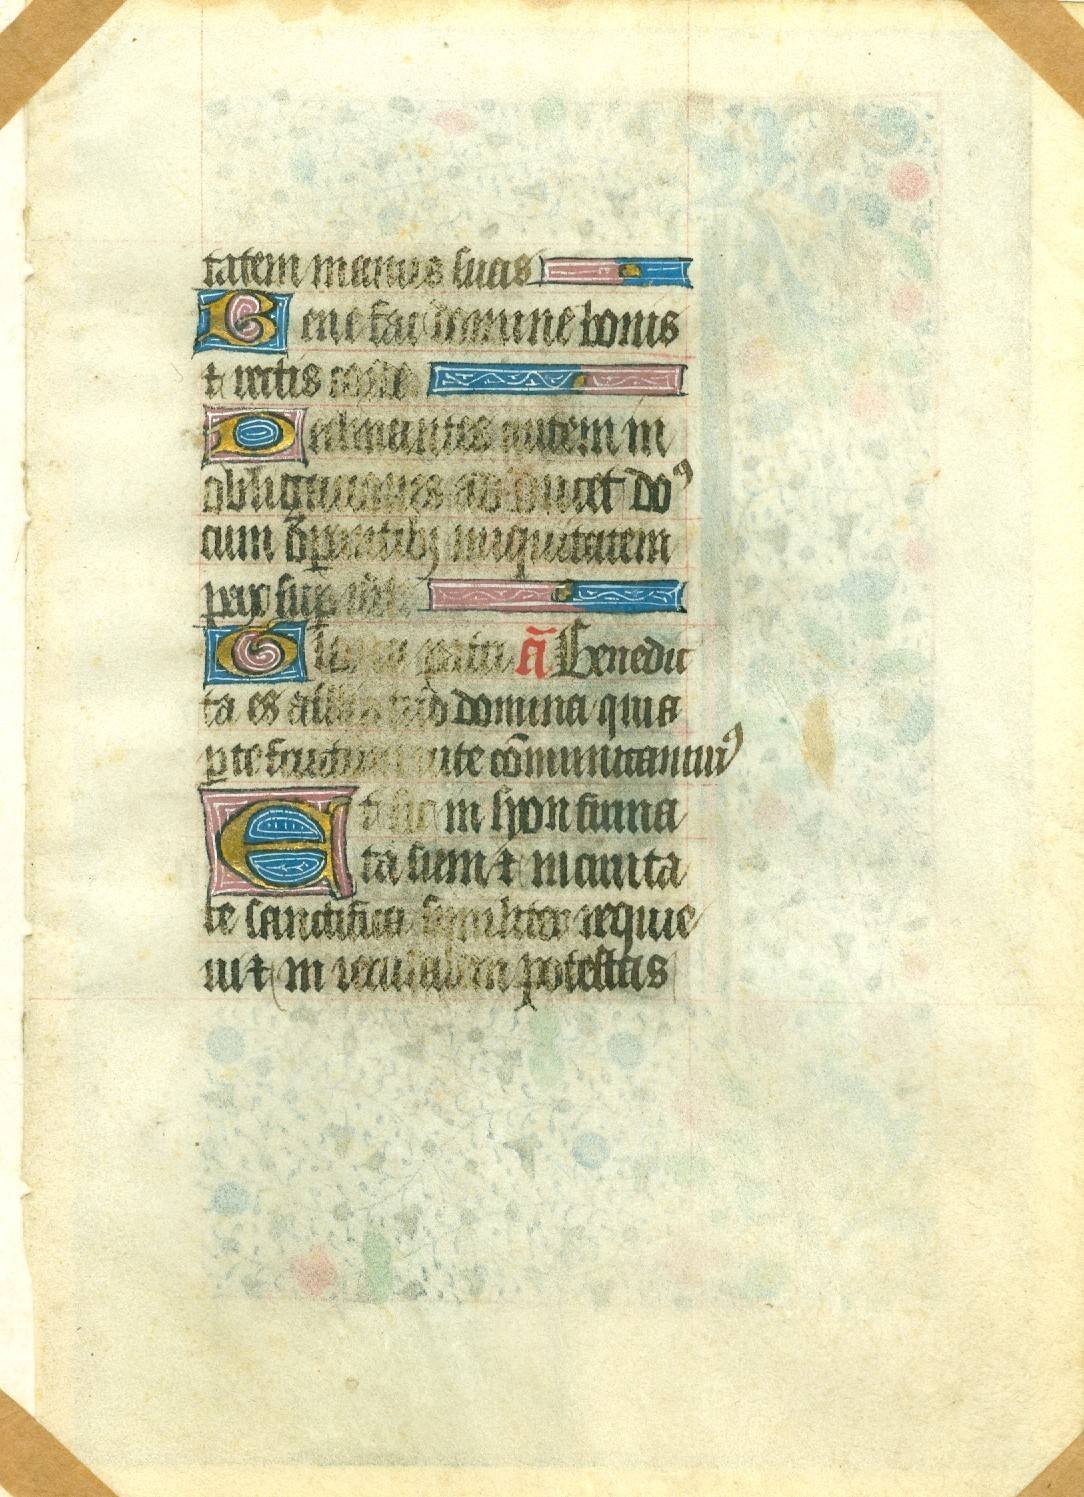 tatem manus suas
Bene fac domine bonis
⁊ rectis corde
Declinantes autem in
obligationes adducet do⁹
cum oꝑantibꝫ iniquitatem
pax suꝑ isrl
Gloria patri ã Benedic
ta es a filia tua domina quia
ꝑ te fructum vite cōmunicamur⁹
Et sic in syon firma
ta sum ⁊ in ciuita
te sanctifica similiter requie
ui ⁊ in ierusalem potestas